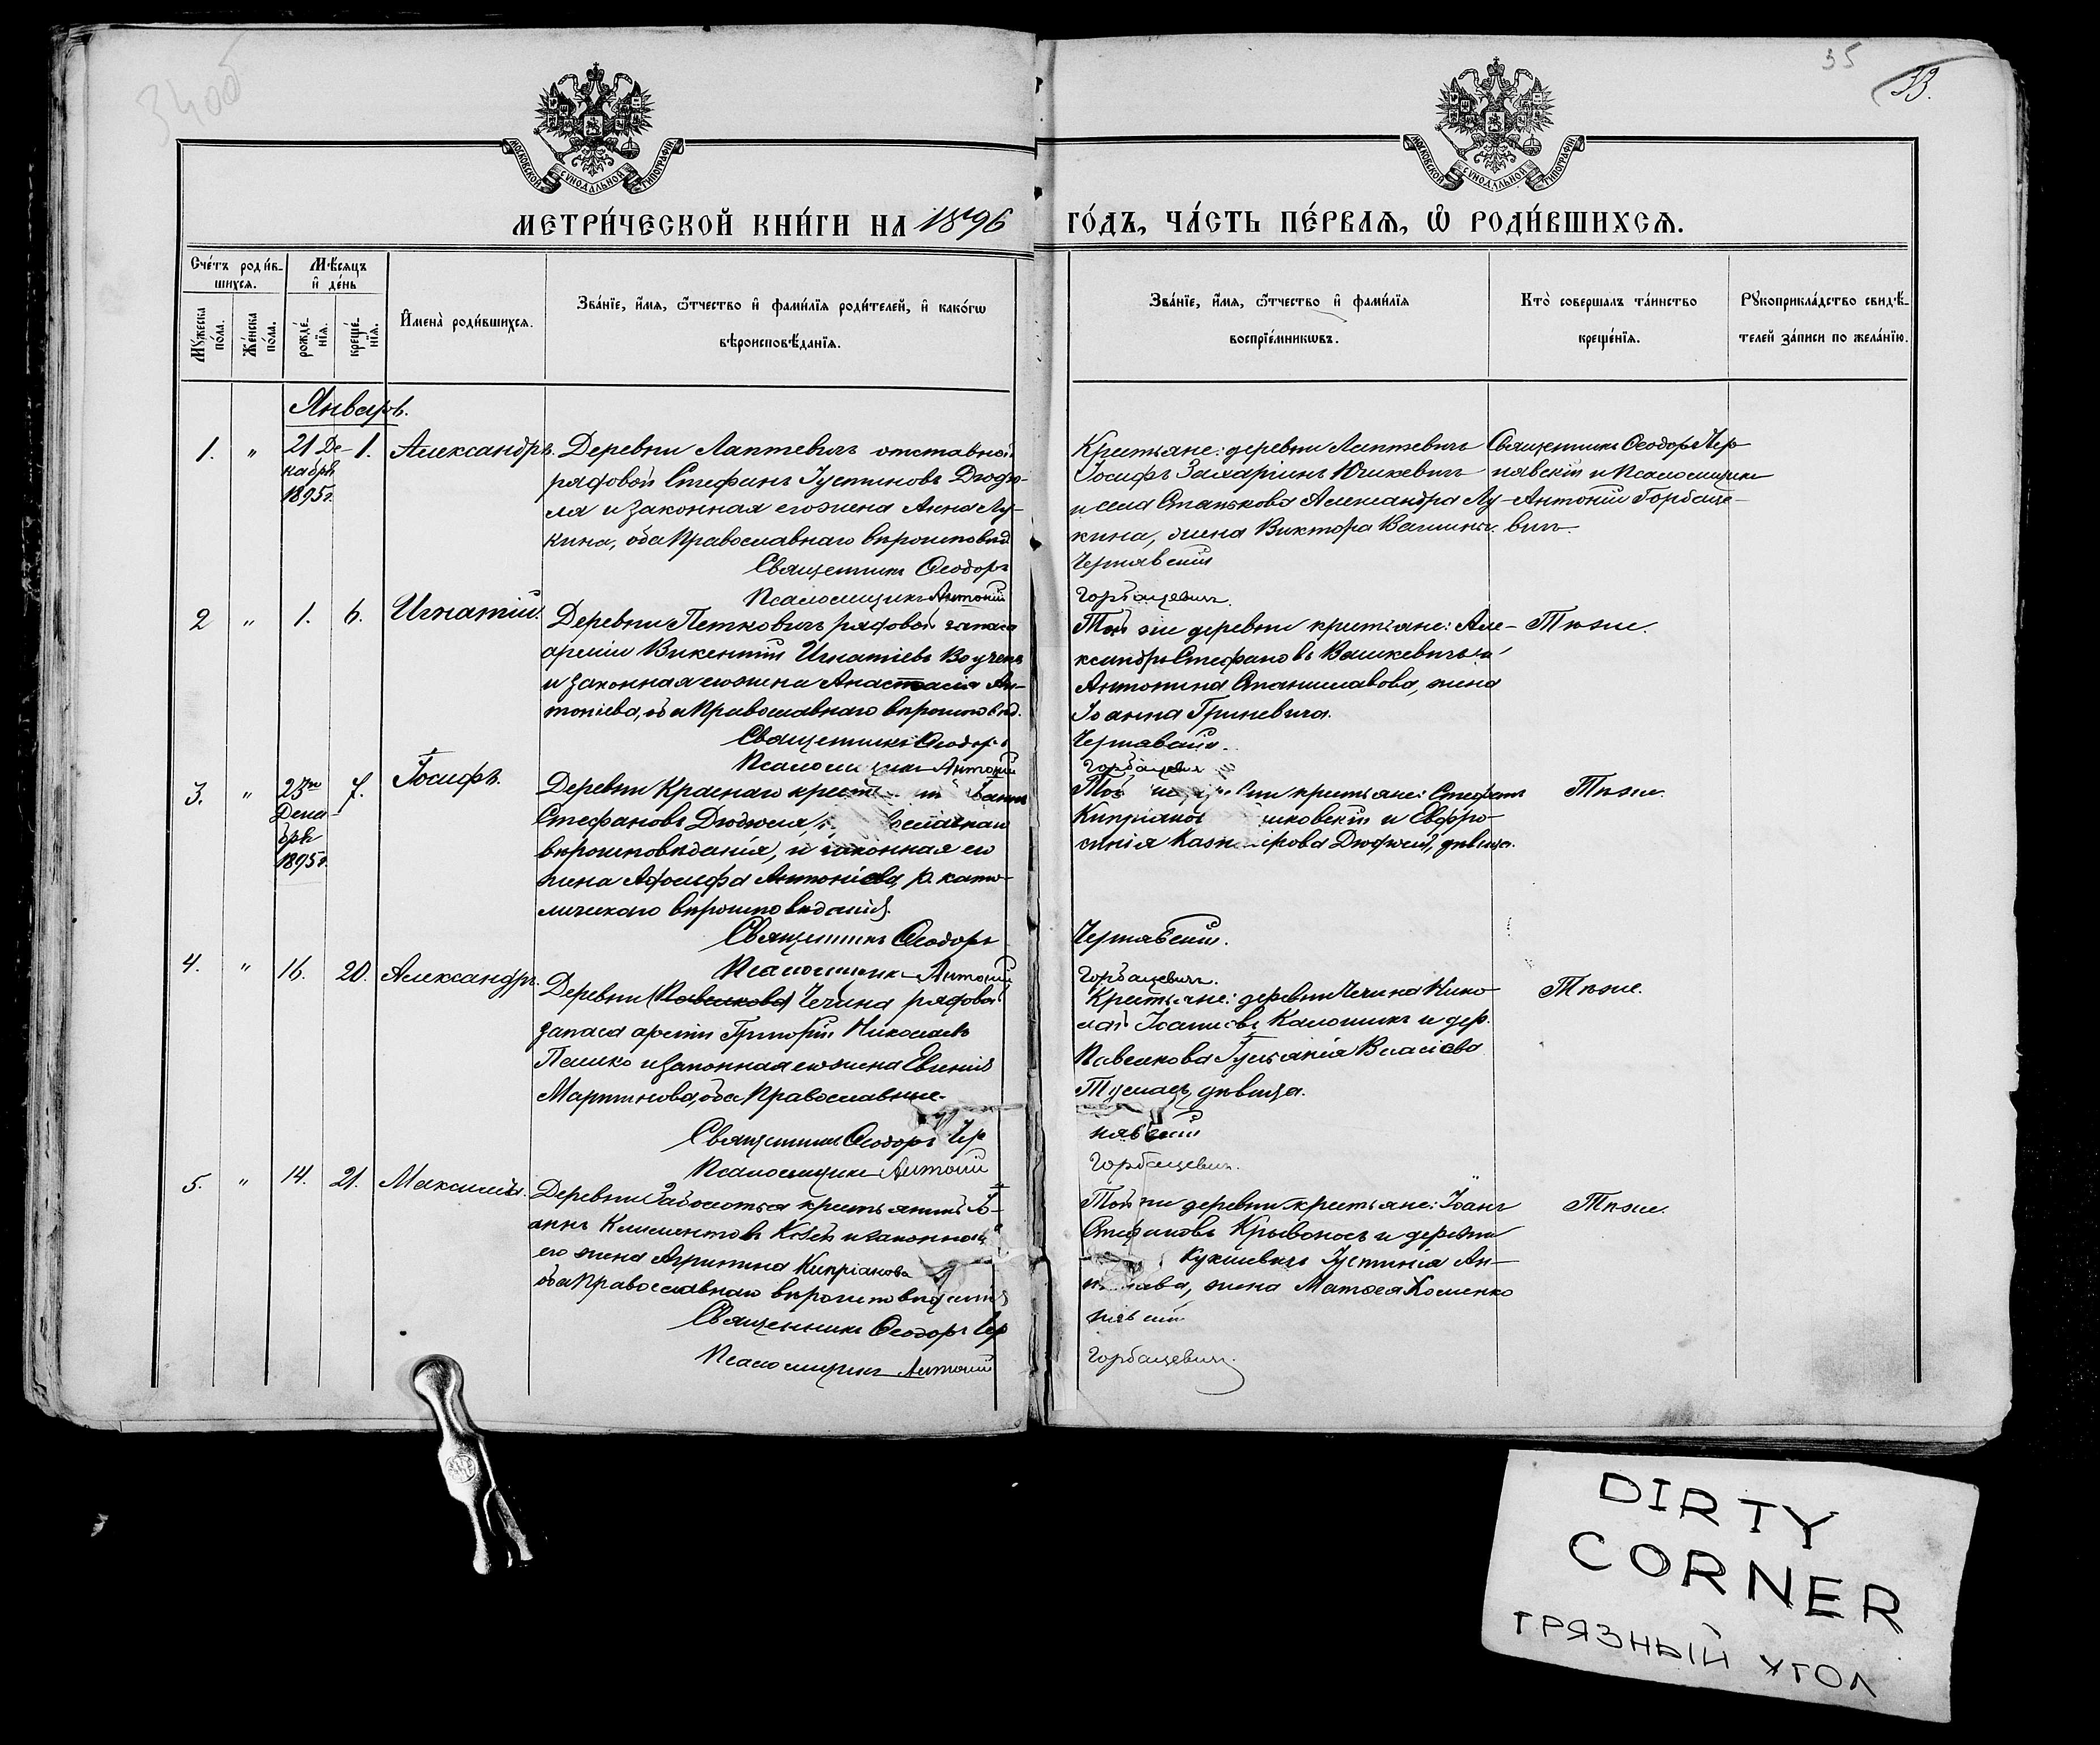 35
33.
МОСКОВСКОЙ СУНОДАЛЬНОЙ ТИПОГРАФІИ
МОСКОВСКОЙ СУНОДАЛЬНОЙ ТИПОГРАФІИ
МЕТРИ́ЧЕСКОЙ КНИ́ГИ НА 1896
ГО́ДЪ, ЧА́СТЬ ПЕ́РВАЯ, Ѿ РОДИ́ВШИХСЯ.
Сче́тъ роди́в-
шихся.
Му́жеска по́ла.
Же́нска по́ла.
Мѣ́сяцъ
и де́нь
рожде́-
нія.
креще́-
нія.
Имена̀ роди́вшихся.
Зва́ніе, и́мя, ѻ́тчество и фами́лія роди́телей, и како́гѡ
вѣроисповѣ́данія.
Зва́ніе, и́мя, ѻ́тчество и фами́лія
воспріе́мникѡвъ.
Кто̀ соверша́лъ та́инство
креще́нія.
Рꙋкоприкла́дство свидѣ́-
телей за́писи по жела́нію.
Январь.
1. " 21 Де-
кабря
1895г.
1. Александръ.
Деревни Лаптевичъ отставной
рядовой Стефанъ Іустиновъ Дюдю-
ля и законная его жена Анна Лу-
кина, оба Православнаго вѣроисповѣд.
Священникъ Ѳеодоръ
Псаломщикъ Антоній
Крестьяне: деревни Лаптевичъ
Іосифъ Захаріинъ Юшкевичъ
и села Станькова Александра Лу-
кина, жена Виктора
Чернявскій
Горбацевичъ.
Священникъ Ѳеодоръ Чер-
нявскій и Псаломщикъ
Антоній Горбаце-
вичъ.
2 " 1. 6. Игнатій.
Деревни Петковичъ рядовой запаса
арміи Викентій Игнатіевъ
и законная его жена Анастасія Ан-
тоніева, оба Православнаго вѣроисповѣд.
Священникъ Ѳеодоръ
Псаломщикъ Антоній
Той же деревни крестьяне: Але-
ксандръ Стефановъ Вашкевичъ и
Антонина Станиславова, жена
Іоанна Гриневича.
Чернявскій.
Горбацевич
Тѣже.
3. " 25го
Дека-
бря
1895г.
7. Іосифъ.
Деревни Краснаго
Стефановъ Дюдюля,
вѣроисповѣданія, и законная его
жена Антоніева, р. като-
лическаго вѣроисповѣданія.
Священникъ Ѳеодоръ
Псаломщикъ Антоній
крестьяне: Стефанъ
и Евфро-
синія Дюдюля, дѣвица.
Чернявскій.
Горбацевичъ.
Тѣже.
4. " 16. 20. Александръ.
Деревни (Павелкова) Чечина рядовой
запаса арміи Григорій Николаевъ
Пашко и законная его жена Евгенія
Мартинова, оба Православные.
Священникъ Ѳеодоръ Чер
Псаломщикъ Антоній
Крестьяне: деревни Чечина Нико-
лай Іоанновъ Калошикъ и дер.
Павелкова Іуліанія Власіева
дѣвица.
нявскій
Горбацевичъ.
Тѣже.
5. " 14. 21. Максимъ.
Деревни Заболотья крестьянинъ Іо-
аннъ Климентовъ и законная
его жена Агрипина Кипріанова
оба Православнаго вѣроисповѣданія
Священникъ Ѳеодоръ Чер
Псаломщикъ Антоній
Той же деревни крестьяне: Іоаннъ
Стефановъ Крывоносъ и деревни
Кукшевичъ Іустинія Ан-
жена Матѳея Хоменко
нявскій
Горбацевичъ.
Тѣже.
DIRTY
CORNER
ГРЯЗНЫЙ УГОЛ